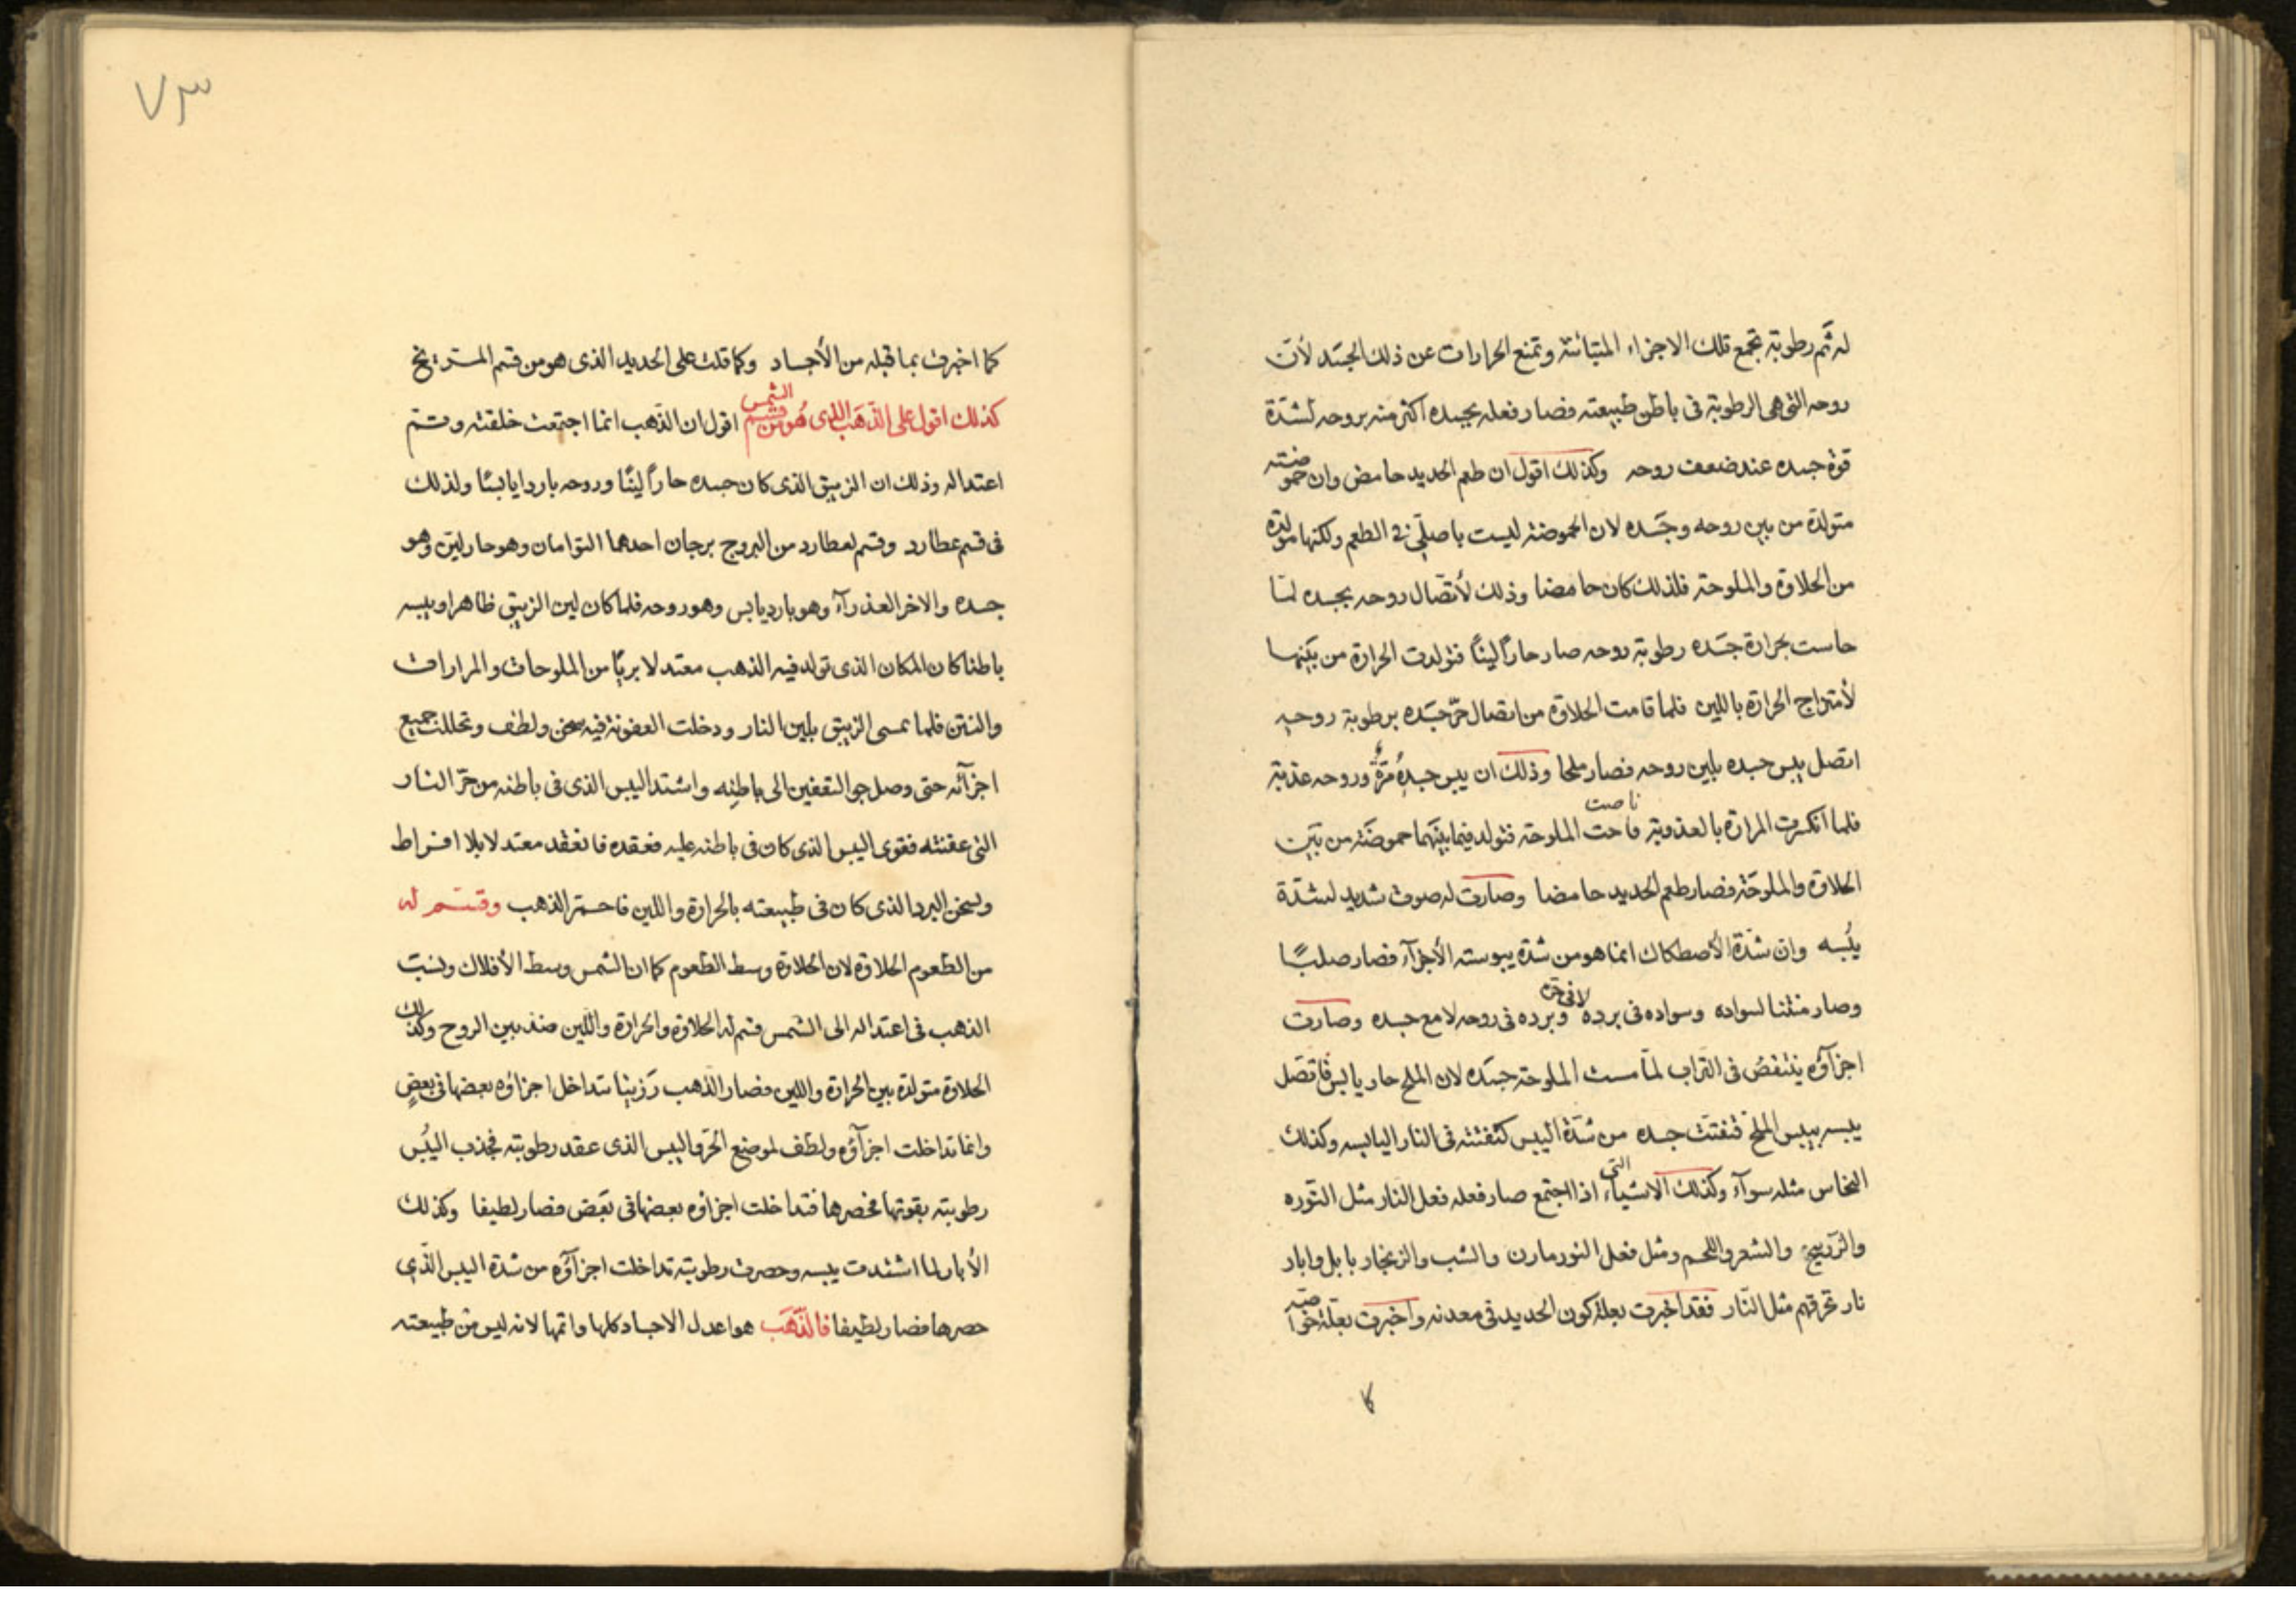 له ثم رطوبة تجمع تلك الاجزاء المتبائنة وتمنع الحرارات عن ذلك الجسد لأن
روحه التى هى الرطوبة فى باطن طبيعته فصار فعله بجسده اكثر منه بروحه لشدة
قوة جسده عند ضعف روحه وكذلك اقول ان طعم الحديد حامض وان حموضته
متولدة من بين روحه وجسده لان الحموضة ليست باصلى فى الطعم ولكنها مولدة
من الحلاوة والملوحة فلذلك كان حامضا وذلك لأتصال روحه بجسده لما
حاست بحرارة جسده رطوبة روحه صار حارا لينا فتولدت الحرارة من بينهما
لأمتزاج الحرارة باللين فلما قامت الحلاوة من اتصال حر جسده برطوبة روحه
اتصل يبس جسده بلين روحه فصار ملحا وذلك ان يبس جسده مرة وروحه عذبة
فلما انكسرت المرارة بالعذوبة فاحت ناصت الملوحة فتولد فيما بينهما حموضة من بين
الحلاوة والملوحة فصار طعم الحديد حامضا وصارت له صوت شديد لشدة
يبسه وان شدة الأصطكاك انما هو من شدة يبوسته الأجزآء فصار صلبا
وصار منتنا لسواده وسواده فى برده لا فى حره وبرده فى روحه لا مع جسده وصارت
اجزآؤه ينتفض فى التراب لما مست الملوحة جسده لان الملح حار يابس فاتصل
يبسه بيبس الملح فتفتت جسده من شدة اليبس كتفتته فى النار اليابسه وكذلك
النحاس مثله سوآء وكذلك الاشياء التى اذا اجتمع صار فعله فعل النار مثل النوره
والزرنيخ والشعر واللحم ومثل فعل النورمارن والشب والزنجار بابل واباد
نار تحرقهم مثل النار فقد اخبرت بعلة كون الحديد فى معدنه واخبرت بعلة خواصه
كا
٧٣
كما اخبرت بما قبله من الأجساد وكما قلت على الحديد الذى هو من قسم المريخ
كذلك اقول على الذهب الذى هو من قسم الشمس اقول ان الذهب انما اجتمعت خلقته وتم
اعتداله وذلك ان الزيبق الذى كان جسده حارا لينا وروحه باردا يابسا ولذلك
فى قسم عطارد وقسم لعطارد من البروج برجان احدهما التوامان وهو حار لين وهو
جسده والاخر العذرآء وهو بارد يابس وهو روحه فلما كان لين الزيبق ظاهرا ويبسه
باطنا كان المكان الذى تولد فيه الذهب معتدلا بريا من الملوحات والمرارات
والنتن فلما مسى الزيبق بلين النار ودخلت العفونة فيه سخن ولطف وتحللت جميع
اجزآئه حتى وصل حر التعفين الى باطنه واشتد اليبس الذى فى باطنه من حر النار
التى عفنته فقوى اليبس الذى كان فى باطنه عليه فعقده فانعقد معتدلا بلا افراط
وسخن البرد الذى كان فى طبيعته بالحرارة واللين فاحمر الذهب وقسم له
من الطعوم الحلاوة لان الحلاوة وسط الطعوم كما ان الشمس وسط الأفلاك ونسبت
الذهب فى اعتداله الى الشمس قسم له الحلاوة والحرارة واللين منذ بين الروح وكذلك
الحلاوة متولدة بين الحرارة واللين فصار الذهب رزينا تداخل اجزاؤه بعضها فى بعض
وانما تداخلت اجزآؤه ولطف لموضع الحر واليبس الذى عقد رطوبته فجذب اليبس
رطوبته بقوتها فحصرها فتداخلت اجزاؤه بعضها فى بعض فصار لطيفا وكذلك
الأبار لما اشتدت يبسه وحصرت رطوبته تداخلت اجزآؤه من شدة اليبس الذى
حصرها فصار لطيفا فالذهب هو اعدل الاجساد كلها واتمها لانه ليس من طبيعته